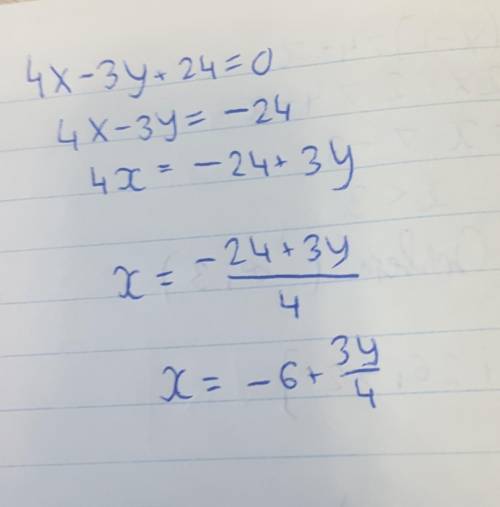 4x-3y+24=0
4x-3y=-24
4x=-24+3y
x=-24+3y/4
x=-6+3y/4